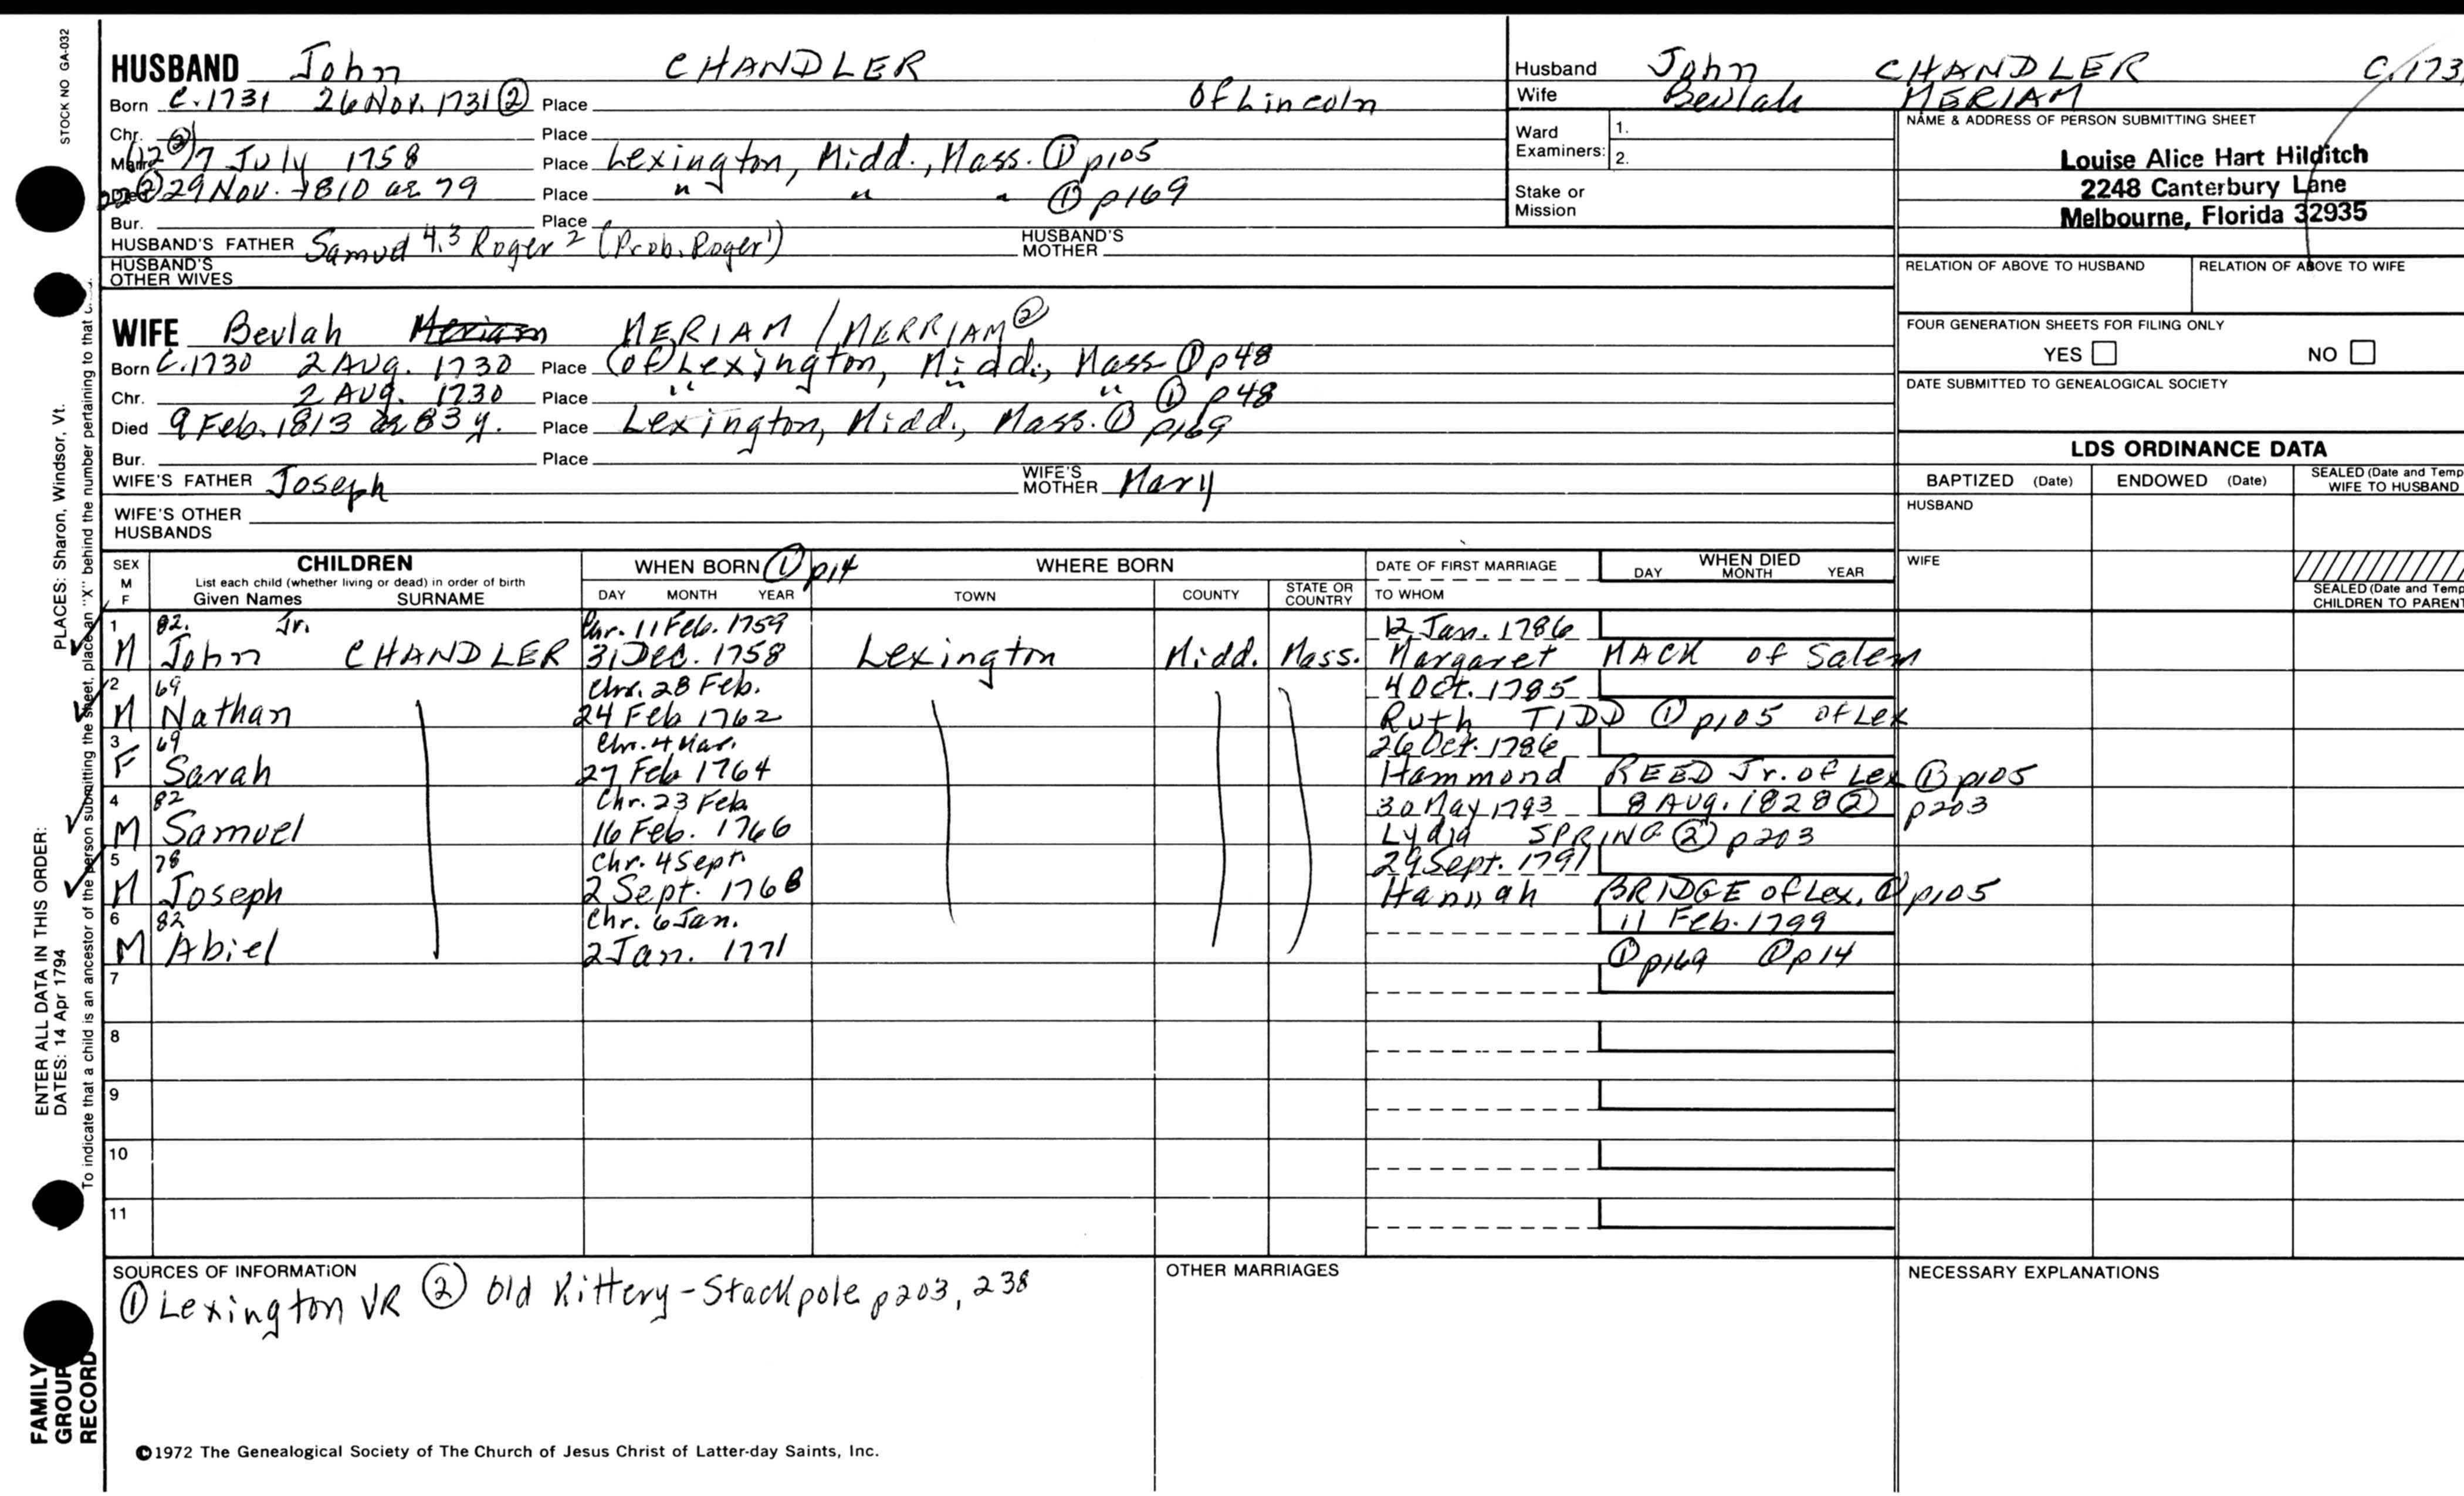 STOCK NO GA-032
HUSBAND John CHANDLER
Born C.1731 26 Nov. 1731 ② Place Of Lincoln
Chr. Place
Marr. (12 ②) 7 July 1758 Place Lexington, Midd., Mass. ① p105
② 29 Nov. 1810 ae 79 Place " " " ① p169
Bur. Place
HUSBAND'S FATHER Samuel 4,3 Roger 2 (Prob. Roger 1) HUSBAND'S MOTHER
HUSBAND'S OTHER WIVES
WIFE Beulah Meriam MERIAM / MERRIAM ②
Born C.1730 2 Aug. 1730 Place (of Lexington, Midd., Mass ① p48
Chr. 2 Aug. 1730 Place " " " ① p48
Died 9 Feb. 1813 ae 83 y. Place Lexington, Midd., Mass. ① p169
Bur. Place
WIFE'S FATHER Joseph WIFE'S MOTHER Mary
WIFE'S OTHER HUSBANDS
Husband John CHANDLER C.173
Wife Beulah MERIAM
Ward Examiners: 1.
2.
Stake or Mission
NAME & ADDRESS OF PERSON SUBMITTING SHEET
Louise Alice Hart Hilditch
2248 Canterbury Lane
Melbourne, Florida 32935
RELATION OF ABOVE TO HUSBAND RELATION OF ABOVE TO WIFE
FOUR GENERATION SHEETS FOR FILING ONLY
YES NO
DATE SUBMITTED TO GENEALOGICAL SOCIETY
LDS ORDINANCE DATA
BAPTIZED (Date) ENDOWED (Date) SEALED (Date and Temp
WIFE TO HUSBAND
HUSBAND
WIFE
SEALED (Date and Temp
CHILDREN TO PARENT
SEX M F CHILDREN WHEN BORN ① p14 WHERE BORN DATE OF FIRST MARRIAGE WHEN DIED
List each child (whether living or dead) in order of birth
Given Names SURNAME DAY MONTH YEAR TOWN COUNTY STATE OR COUNTRY TO WHOM DAY MONTH YEAR
1 82. Jr. Chr. 11 Feb. 1759 12 Jan. 1786
M John CHANDLER 31 Dec. 1758 Lexington Midd. Mass. Margaret MACK of Salem
2 69 Chr. 28 Feb. 4 Oct. 1785
M Nathan 24 Feb 1762 Ruth TIDD ① p105 of Lex
3 69 Chr. 4 Mar. 26 Oct. 1786
F Sarah 27 Feb 1764 Hammond REED Jr. of Lex ① p105
4 82 Chr. 23 Feb 30 May 1793 8 Aug. 1828 ② p203
M Samuel 16 Feb. 1766 Lydia SPRING ② p203
5 78 Chr. 4 Sept. 29 Sept. 1791
M Joseph 2 Sept. 1768 Hannah BRIDGE of Lex. ① p105
6 82 Chr. 6 Jan. 11 Feb. 1799
M Abiel 2 Jan. 1771 ① p169 ① p14
7
8
9
10
11
SOURCES OF INFORMATION
① Lexington VR ② Old Kittery - Stackpole p203, 238
OTHER MARRIAGES
NECESSARY EXPLANATIONS
©1972 The Genealogical Society of The Church of Jesus Christ of Latter-day Saints, Inc.
FAMILY GROUP RECORD
ENTER ALL DATA IN THIS ORDER:
DATES: 14 Apr 1794 PLACES: Sharon, Windsor, Vt.
To indicate that a child is an ancestor of the person submitting the sheet, place an "X" behind the number pertaining to that